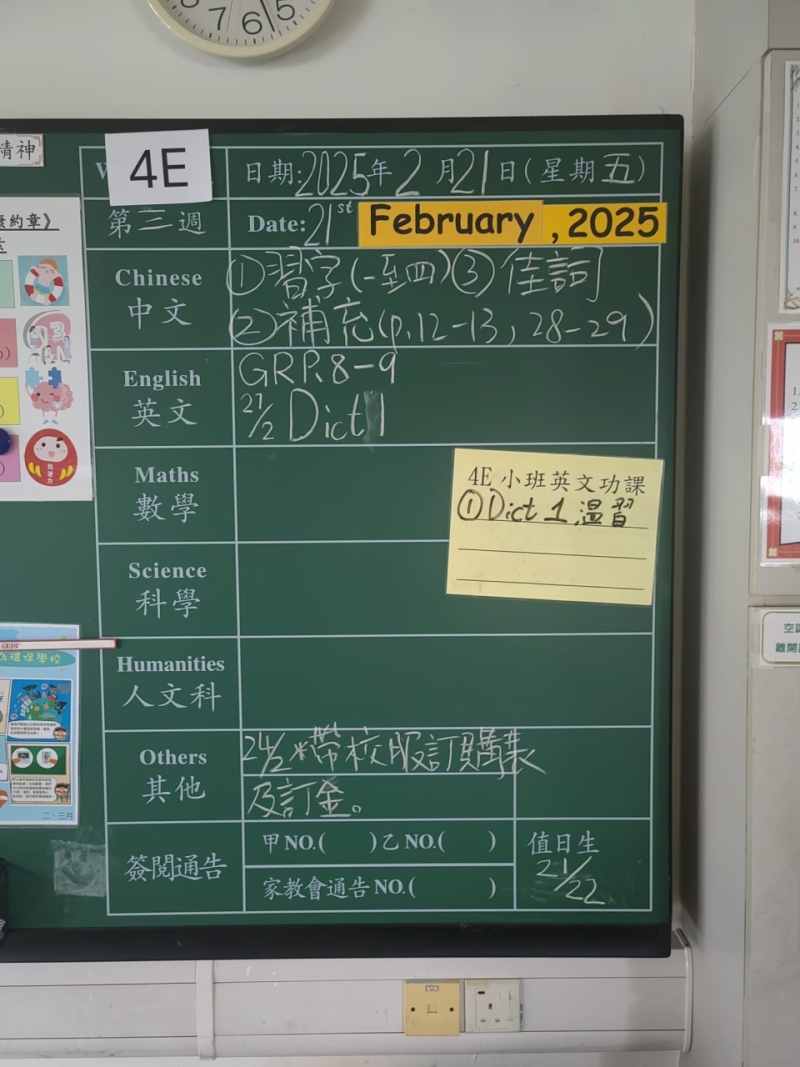 7 6 5
精神
4E
日期:2025年2月21日(星期五)
第三週
Date: 21st February, 2025
康約章》
Chinese
中文
①習字(一至四)③佳詞
②補充(p.12-13, 28-29)
English
英文
GRP.8-9
27/2 Dict 1
Maths
數學
4E 小班英文功課
①Dict 1 溫習
Science
科學
Humanities
人文科
Others
其他
24/2 *帶校服訂購表
及訂金。
簽閱通告
甲NO.( )乙NO.( )
家教會通告NO.( )
值日生
21/22
環保學校
二、三月
空調
離開